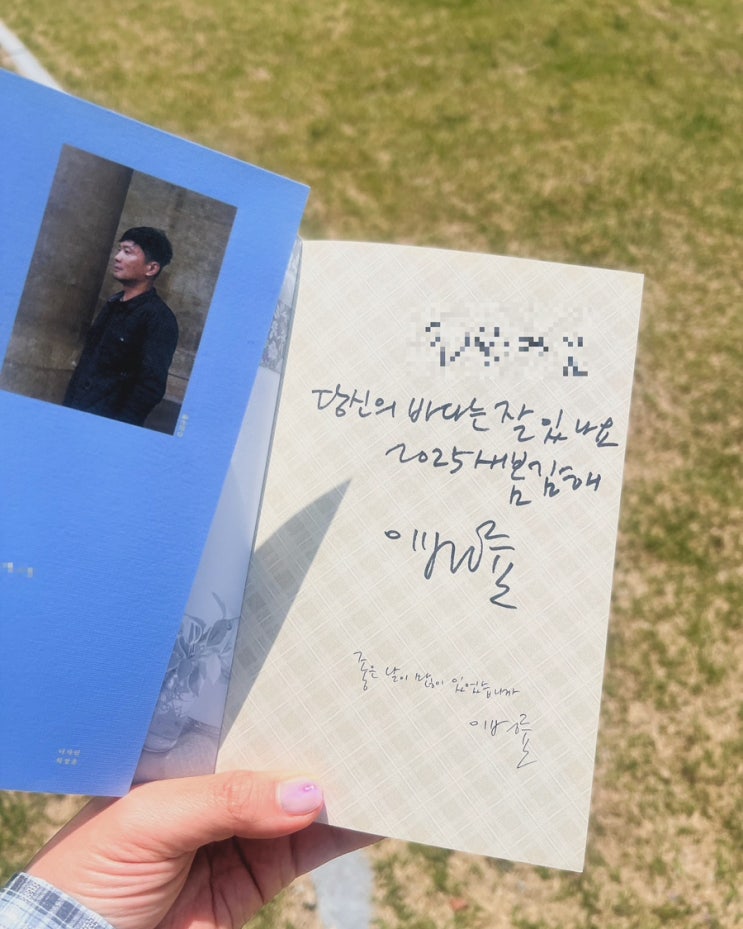 당신의 바다는 잘 있나요
2025 새봄 김해
이병률
좋은 날이 많이 있었습니까
이병률
디자인